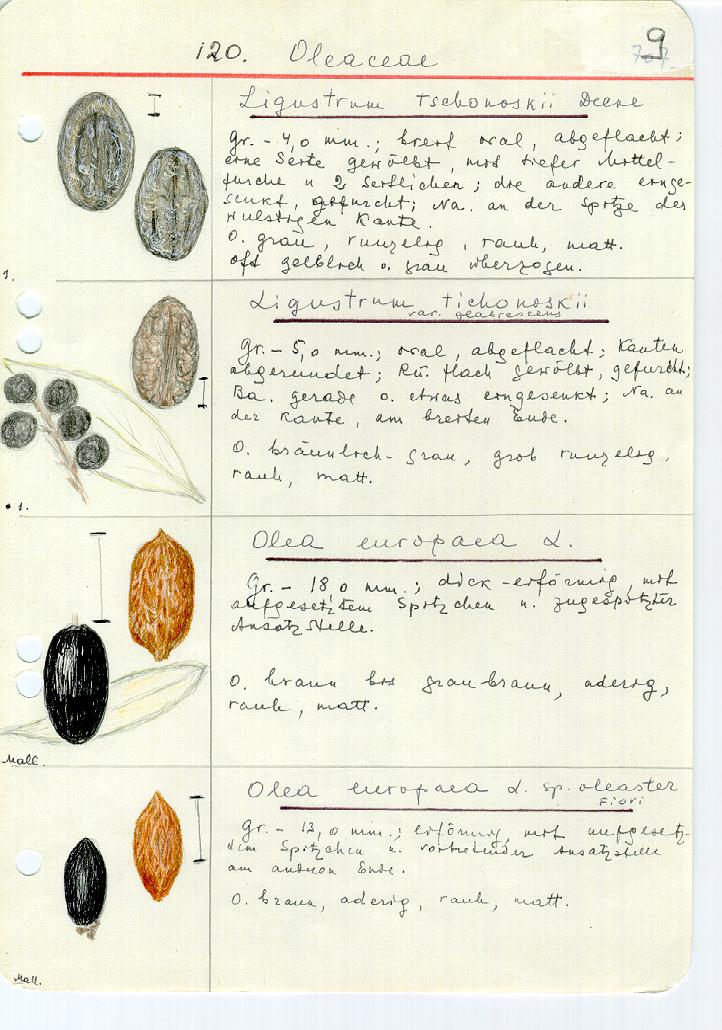 120. Oleaceae
9
Ligustrum tschonoskii Decne
Gr. - 4,0 mm.; breit oval, abgeflacht;
eine Seite gewölbt, mit tiefer Mittel-
furche u 2 seitlichen; die andere einge-
senkt, gefurcht; Na. an der Spitze der
wulstigen Kante.
O. grau, runzelig, rauh, matt.
oft gelblich o. grau überzogen.
1.
Ligustrum tichonoskii
var. glabrescens
Gr. - 5,0 mm.; oval, abgeflacht; Kanten
abgerundet; Rü. flach gewölbt, gefurcht;
Ba. gerade o. etwas eingesenkt; Na. an
der Kante, am breiten Ende.
O. bräunlich-grau, grob runzelig,
rauh, matt.
1.
Olea europaea L.
Gr. - 18,0 mm.; dick-eiförmig, mit
aufgesetztem Spitzchen u. zugespitzter
Ansatzstelle.
O. braun bis graubraun, aderig,
rauh, matt.
Mall.
Olea europaea L. sp. oleaster
Fiori
Gr. - 12,0 mm.; eiförmig, mit aufgesetz-
tem Spitzchen u. vortretender Ansatzstelle
am anderen Ende.
O. braun, aderig, rauh, matt.
Mall.